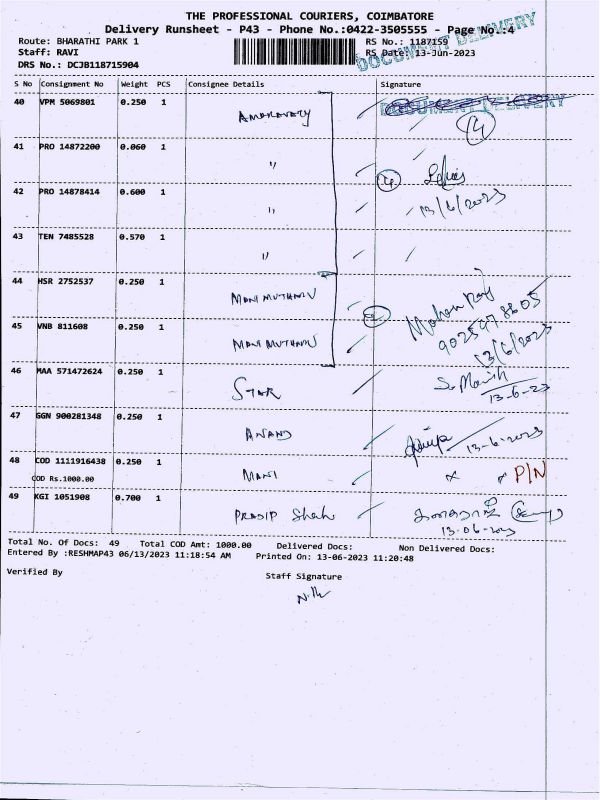 THE PROFESSIONAL COURIERS, COIMBATORE
Delivery Runsheet - P43 - Phone No.:0422-3505555 - Page No.:4
Route: BHARATHI PARK 1 RS No.: 1187159
Staff: RAVI RS Date: 13-Jun-2023
DRS No.: DCJB118715904
DOCUMENT DELIVERY
S No Consignment No Weight PCS Consignee Details Signature
40 VPM 5069801 0.250 1
DOCUMENT DELIVERY
14
41 PRO 14872200 0.060 1 "
42 PRO 14878414 0.600 1 " 13/6/2023
43 TEN 7485528 0.570 1 "
44 HSR 2752537 0.250 1 MANIMUTHARU Mohan Raj
9025978605
45 VNB 811608 0.250 1 MANIMUTHARU 13/6/2023
46 MAA 571472624 0.250 1 STAR S. Manish
13-6-23
47 GGN 900281348 0.250 1 ANAND 13-6-2023
48 COD 1111916438 0.250 1 MANI P/N
COD Rs.1000.00
49 KGI 1051908 0.700 1 PRADIP Shah
13-06-2023
Total No. Of Docs: 49 Total COD Amt: 1000.00 Delivered Docs: Non Delivered Docs:
Entered By :RESHMAP43 06/13/2023 11:18:54 AM Printed On: 13-06-2023 11:20:48
Verified By Staff Signature